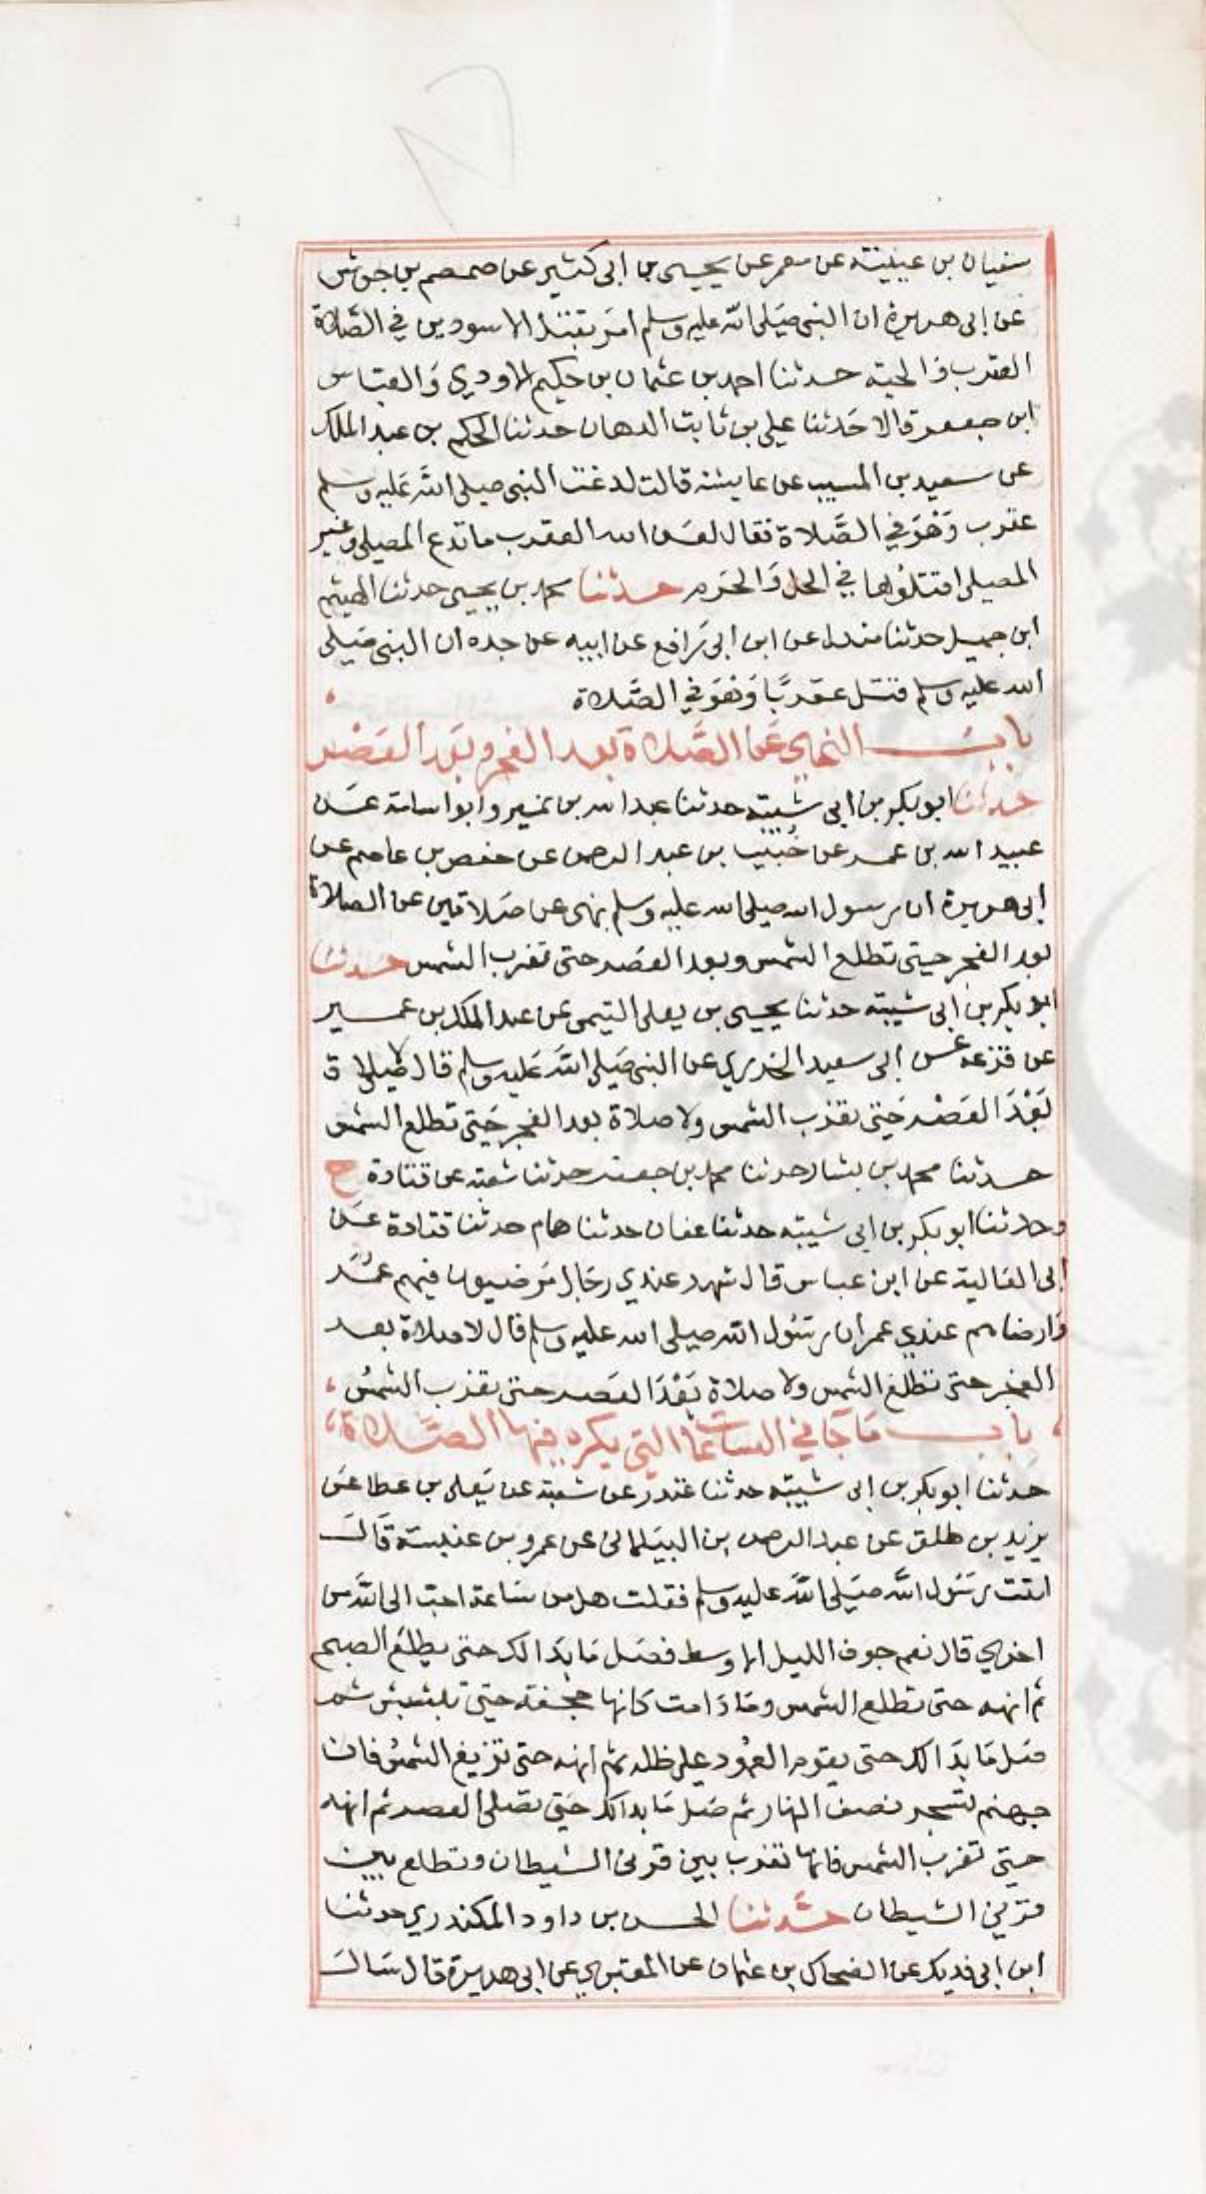 سفيان بن عيينة عن معمر عن يحيى بن ابى كثير عن ضمضم بن جوش
عن ابى هريرة ان النبى صلى الله عليه وسلم امر بقتل الاسودين في الصلاة
العقرب والحية حدثنا احمد بن عثمان بن حكيم الاودي والعباس
ابن جعفر قالا حدثنا علي بن ثابت الدهان حدثنا الحكم بن عبد الملك
عن سعيد بن المسيب عن عايشة قالت لدغت النبى صلى الله عليه وسلم
عقرب وهو في الصلاة فقال لعن الله العقرب ماتدع المصلى وغير
المصلى اقتلوها في الحل والحرم حدثنا محمد بن يحيى حدثنا الهيثم
ابن جميل حدثنا مندل عن ابن ابى رافع عن ابيه عن جده ان النبى صلى
الله عليه وسلم قتل عقربا وهو في الصلاة
باب النهي عن الصلاة بعد الفجر وبعد العصر
حدثنا ابو بكر بن ابى شيبة حدثنا عبد الله بن نمير وابو اسامة عن
عبيد الله بن عمر عن خبيب بن عبد الرحمن عن حفص بن عاصم عن
ابى هريرة ان رسول الله صلى الله عليه وسلم نهى عن صلاتين عن الصلاة
بعد الفجر حتى تطلع الشمس وبعد العصر حتى تغرب الشمس حدثنا
ابو بكر بن ابى شيبة حدثنا يحيى بن يعلى التيمى عن عبد الملك بن عمير
عن قزعة عن ابى سعيد الخدري عن النبى صلى الله عليه وسلم قال لا صلاة
بعد العصر حتى تغرب الشمس ولا صلاة بعد الفجر حتى تطلع الشمس
حدثنا محمد بن بشار حدثنا محمد بن جعفر حدثنا شعبة عن قتادة ح
وحدثنا ابو بكر بن ابى شيبة حدثنا عفان حدثنا همام حدثنا قتادة عن
ابى العالية عن ابن عباس قال شهد عندي رجال مرضيون فيهم عمر
وارضاهم عندي عمر ان رسول الله صلى الله عليه وسلم قال لا صلاة بعد
الفجر حتى تطلع الشمس ولا صلاة بعد العصر حتى تغرب الشمس
باب ما جا في الساعات التى يكره فيها الصلاة
حدثنا ابو بكر بن ابى شيبة حدثنا غندر عن شعبة عن يعلى بن عطا عن
يزيد بن طلق عن عبد الرحمن بن البيلمانى عن عمرو بن عنبسة قال
اتيت رسول الله صلى الله عليه وسلم فقلت هل من ساعة احب الى الله من
اخري قال نعم جوف الليل الاوسط فصل ما بدا لك حتى يطلع الصبح
ثم انهه حتى تطلع الشمس وما دامت كانها حجفة حتى تبشبش ثم
صل ما بدا لك حتى يقوم العمود على ظله ثم انهه حتى تزيغ الشمس فان
جهنم تسجر نصف النهار ثم صل ما بدا لك حتى تصلى العصر ثم انهه
حتى تغرب الشمس فانها تغرب بين قرنى الشيطان وتطلع بين
قرني الشيطان حدثنا الحسن بن داود المنكدري حدثنا
ابن ابى فديك عن الضحاك بن عثمان عن المقبري عن ابى هريرة قال سال